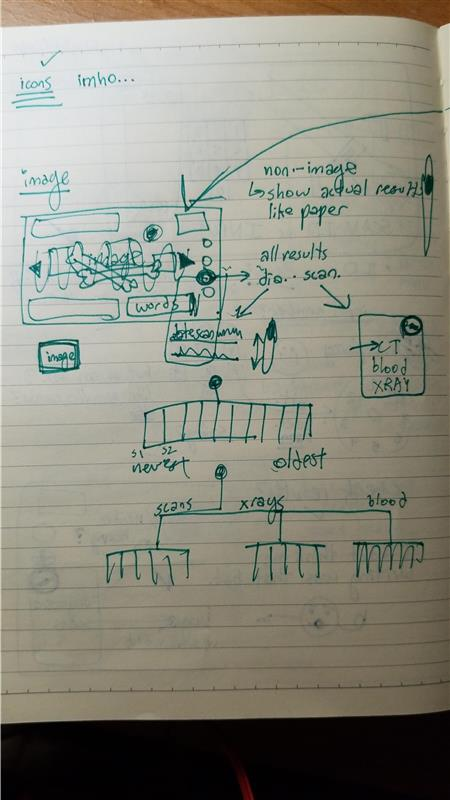 icons imho...
image
non-image
↳ show actual results
like paper
image
all results
dia... scan.
words
date scan
image
CT
blood
XRAY
S1 S2
newest oldest
scans xrays blood